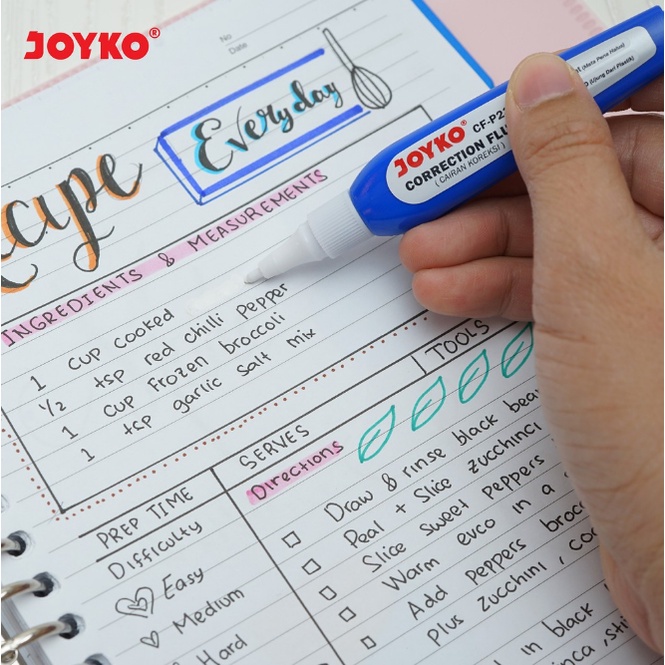 JOYKO®
No
Date
Recipe
Everyday
JOYKO®
CORRECTION
(CAIRAN KOREKSI)
INGREDIENTS & MEASUREMENTS
1 cup cooked
1/2 tsp red chilli pepper
1 cup frozen broccoli
1 tsp garlic salt mix
TOOLS
SERVES
PREP TIME
Difficulty
Easy
Medium
Hard
Directions
Draw & rinse black
Peal + Slice zucchinci
Slice sweet peppers
Warm evco in a
Add peppers
plus zucchini,
in black